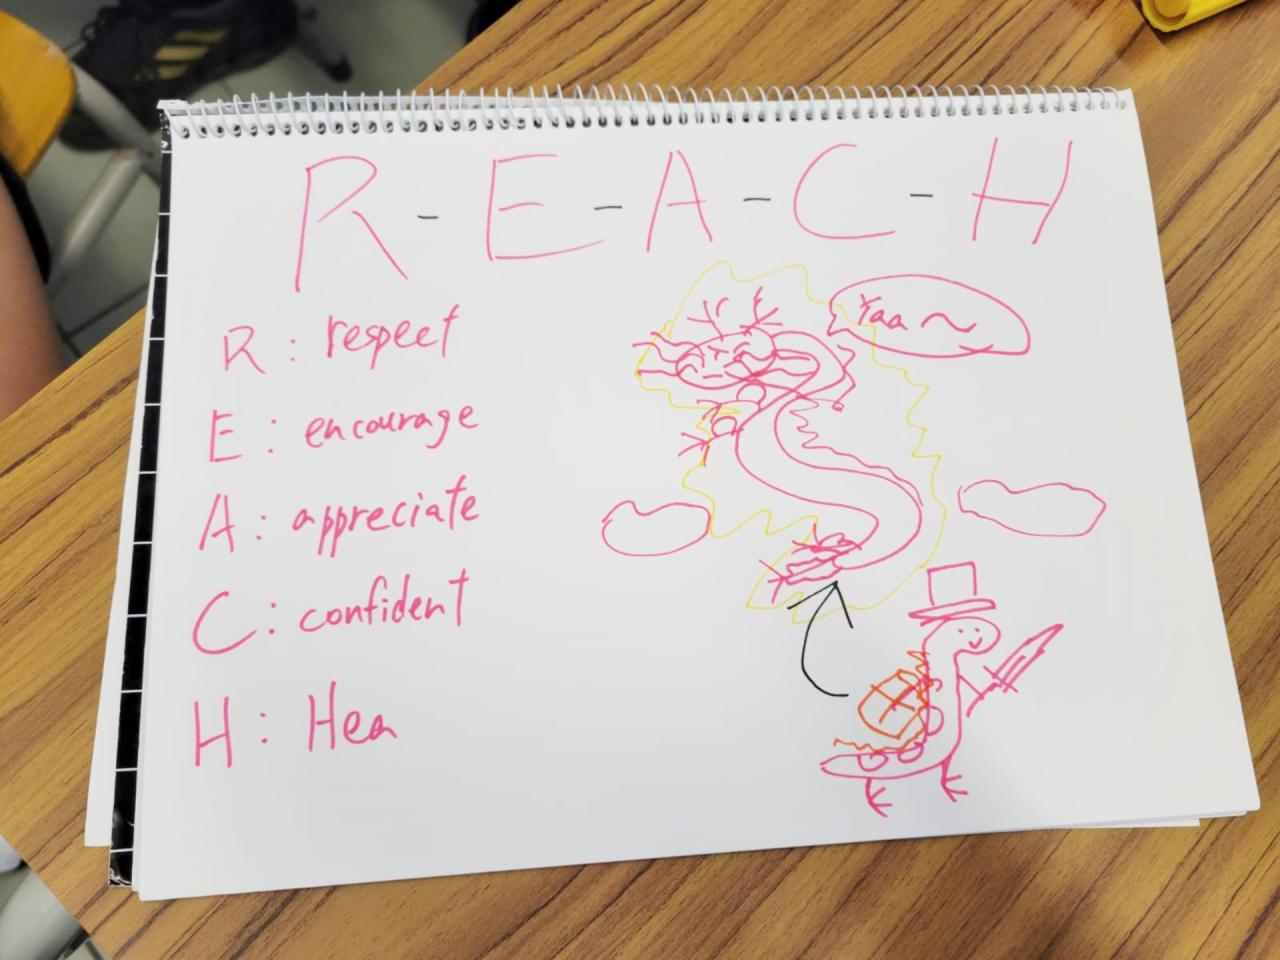 R-E-A-C-H
R: respect
E: encourage
A: appreciate
C: confident
H: Hea
Yaa~